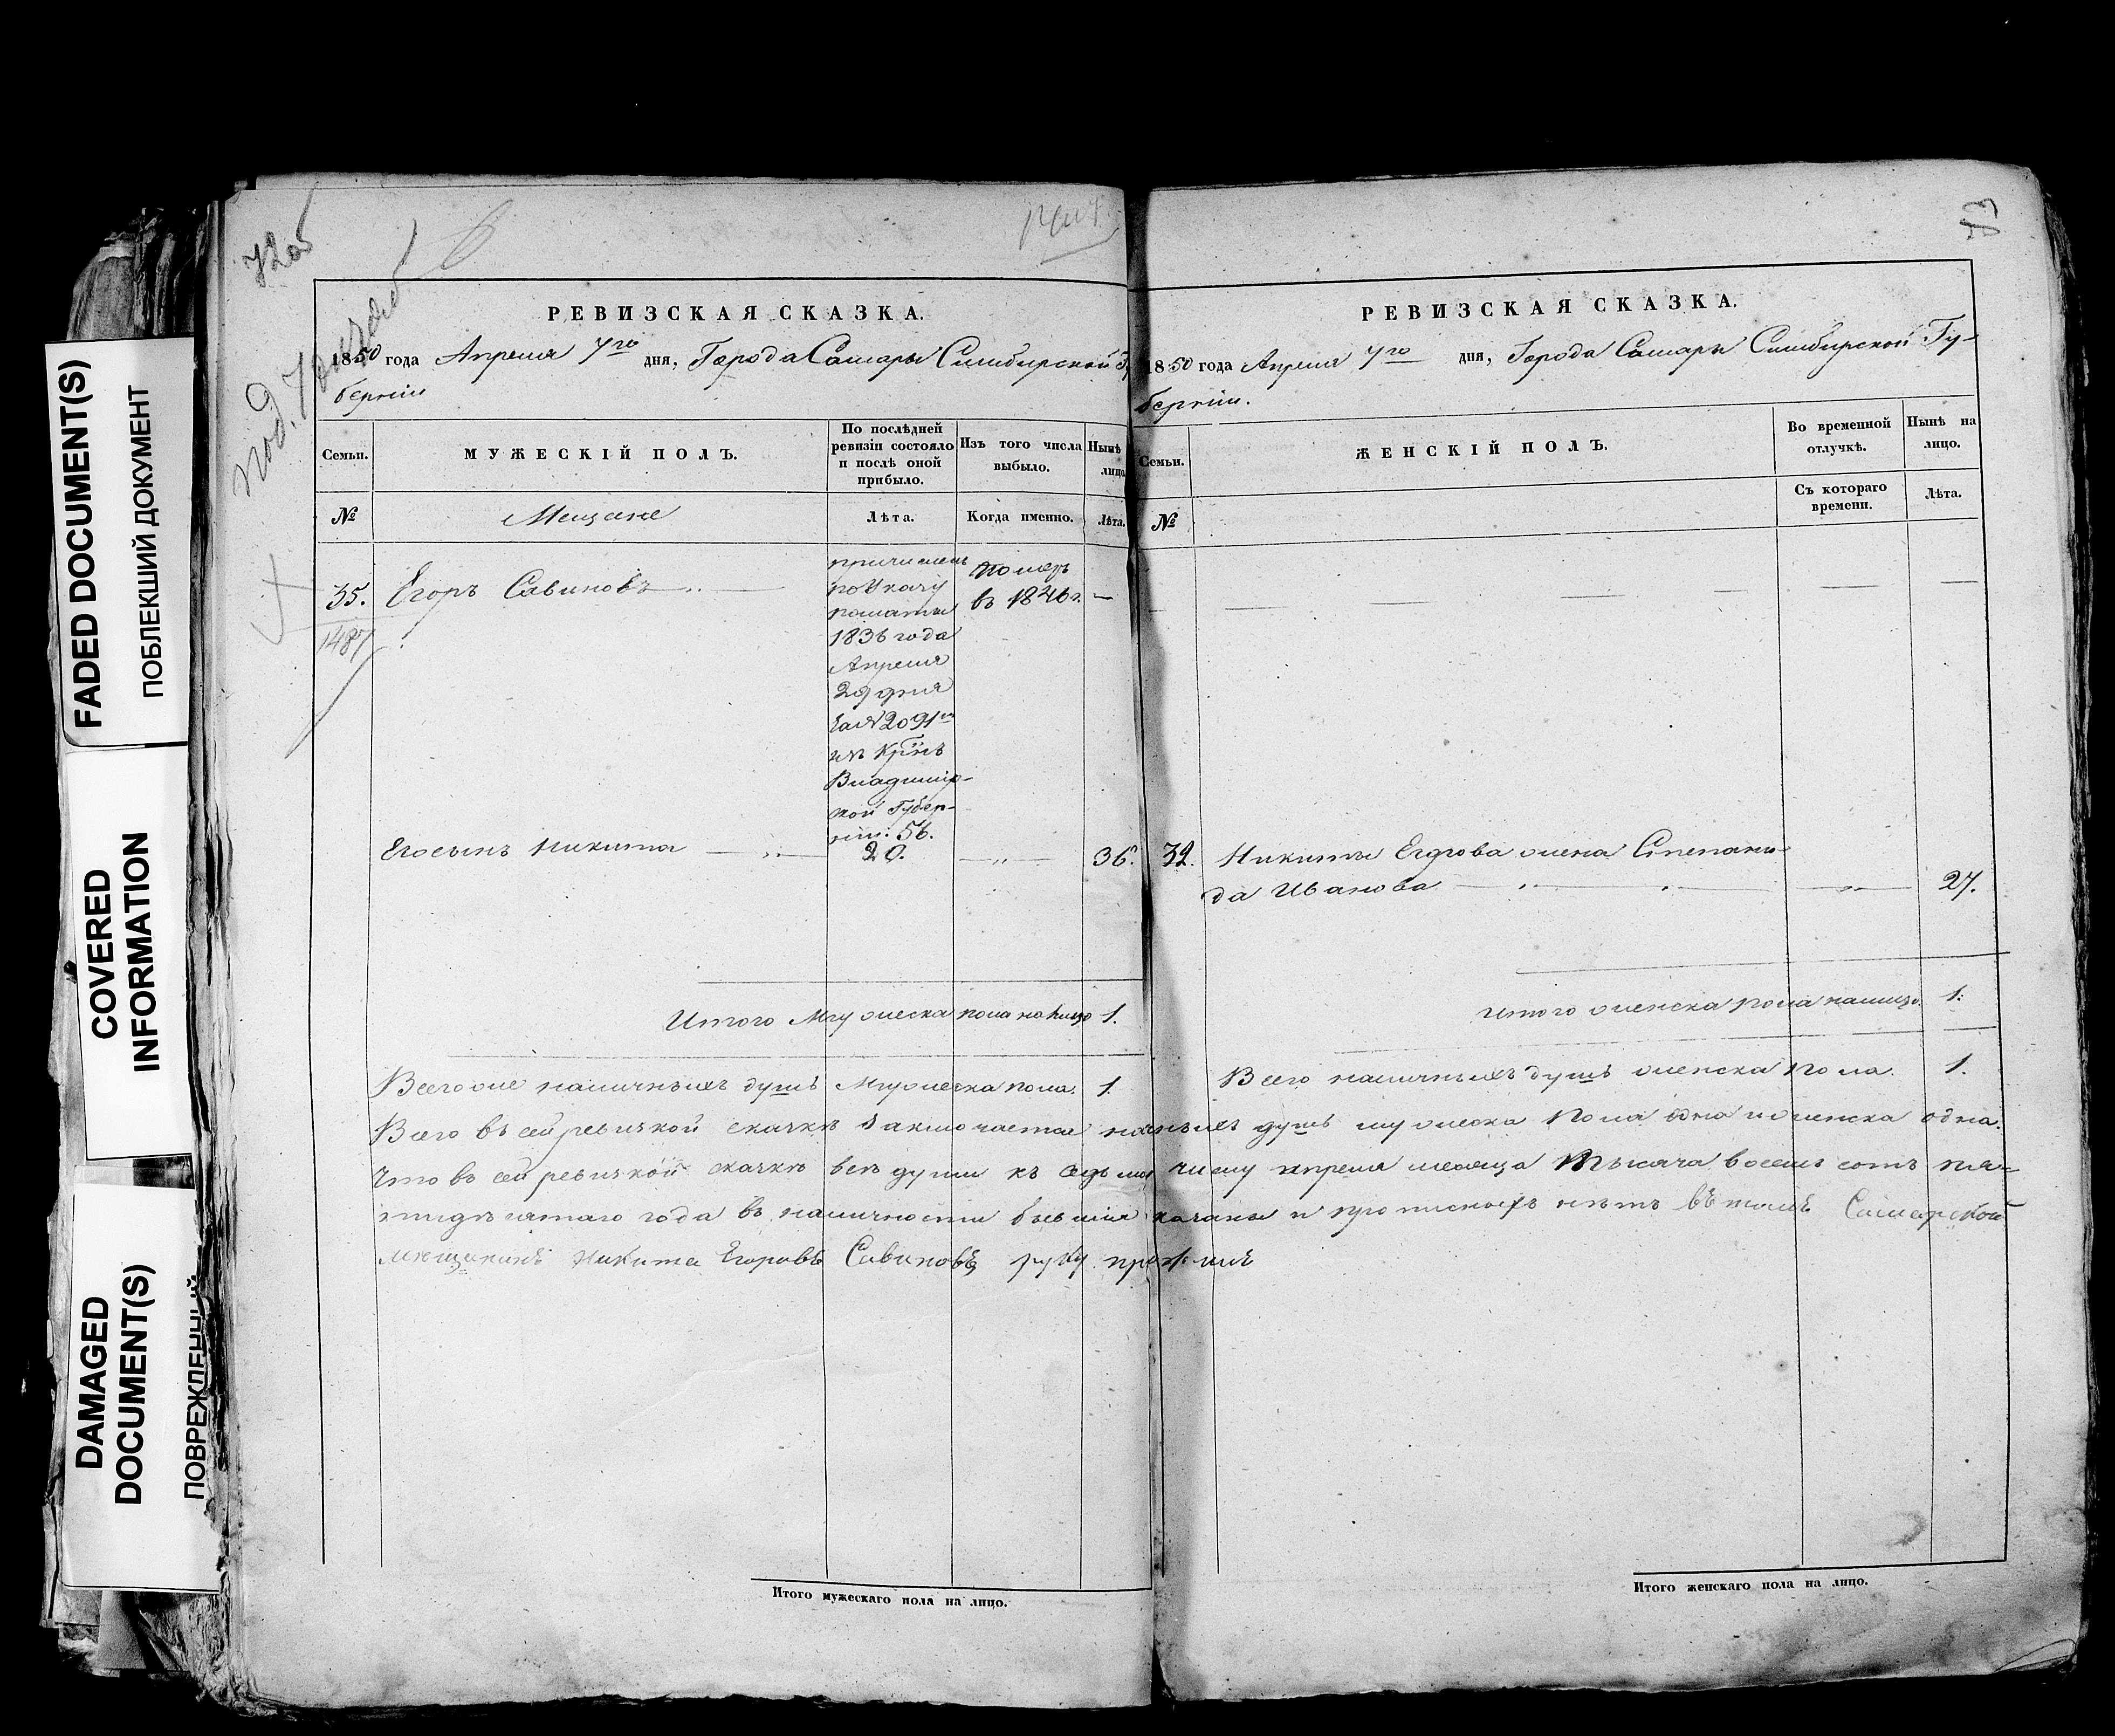 FADED DOCUMENT(S)
ПОБЛЕКШИЙ ДОКУМЕНТ
COVERED
INFORMATION
DAMAGED
DOCUMENT(S)
ПОВРЕЖДЕННЫЙ
РЕВИЗСКАЯ СКАЗКА.
1850 года Апреля 7го дня, Города Самары Симбирской Гу
берніи
Семьи.
МУЖЕСКІЙ ПОЛЪ.
По послѣдней
ревизіи состояло
и послѣ оной
прибыло.
Изъ того числа
выбыло.
Нынѣ
лицо
№
Мещане
Лѣта.
Когда именно.
Лѣта.
35.
1487
Егоръ Савиновъ
причисленъ
по Указу
палаты
1836 года
Апреля
29 дня
за № 2091м
изъ Крīнъ
Владимір-
ской Губер-
ніи. 56.
померъ
въ 1846 г.
Его сынъ Никита
20.
36.
Итого мужеска пола на лицо 1.
Всего же наличныхъ душъ Мужеска пола. 1.
РЕВИЗСКАЯ СКАЗКА.
1850 года Апреля 7го дня, Города Самары Симбирской Гу-
берніи.
Семьи.
ЖЕНСКІЙ ПОЛЪ.
Во временной
отлучкѣ.
Нынѣ на
лицо.
№
Съ котораго
времени.
Лѣта.
Никиты Егорова жена Степани-
да Иванова 27.
Итого женска пола налицо. 1.
Всего наличныхъ душъ женска пола. 1.
Всего въ сей ревизкой сказкѣ заключается душъ мужеска пола одна и женска одна.
Что въ сей ревизкой сказкѣ всѣ души къ седьмому числу апреля месяца тысяча восемь сотъ пя-
тидѣсятаго года въ наличности бывшія показаны и прописныхъ нѣтъ въ томъ Самарской
мещанинъ Никита Егоровъ Савиновъ руку приложилъ
Итого мужескаго пола на лицо.
Итого женскаго пола на лицо.